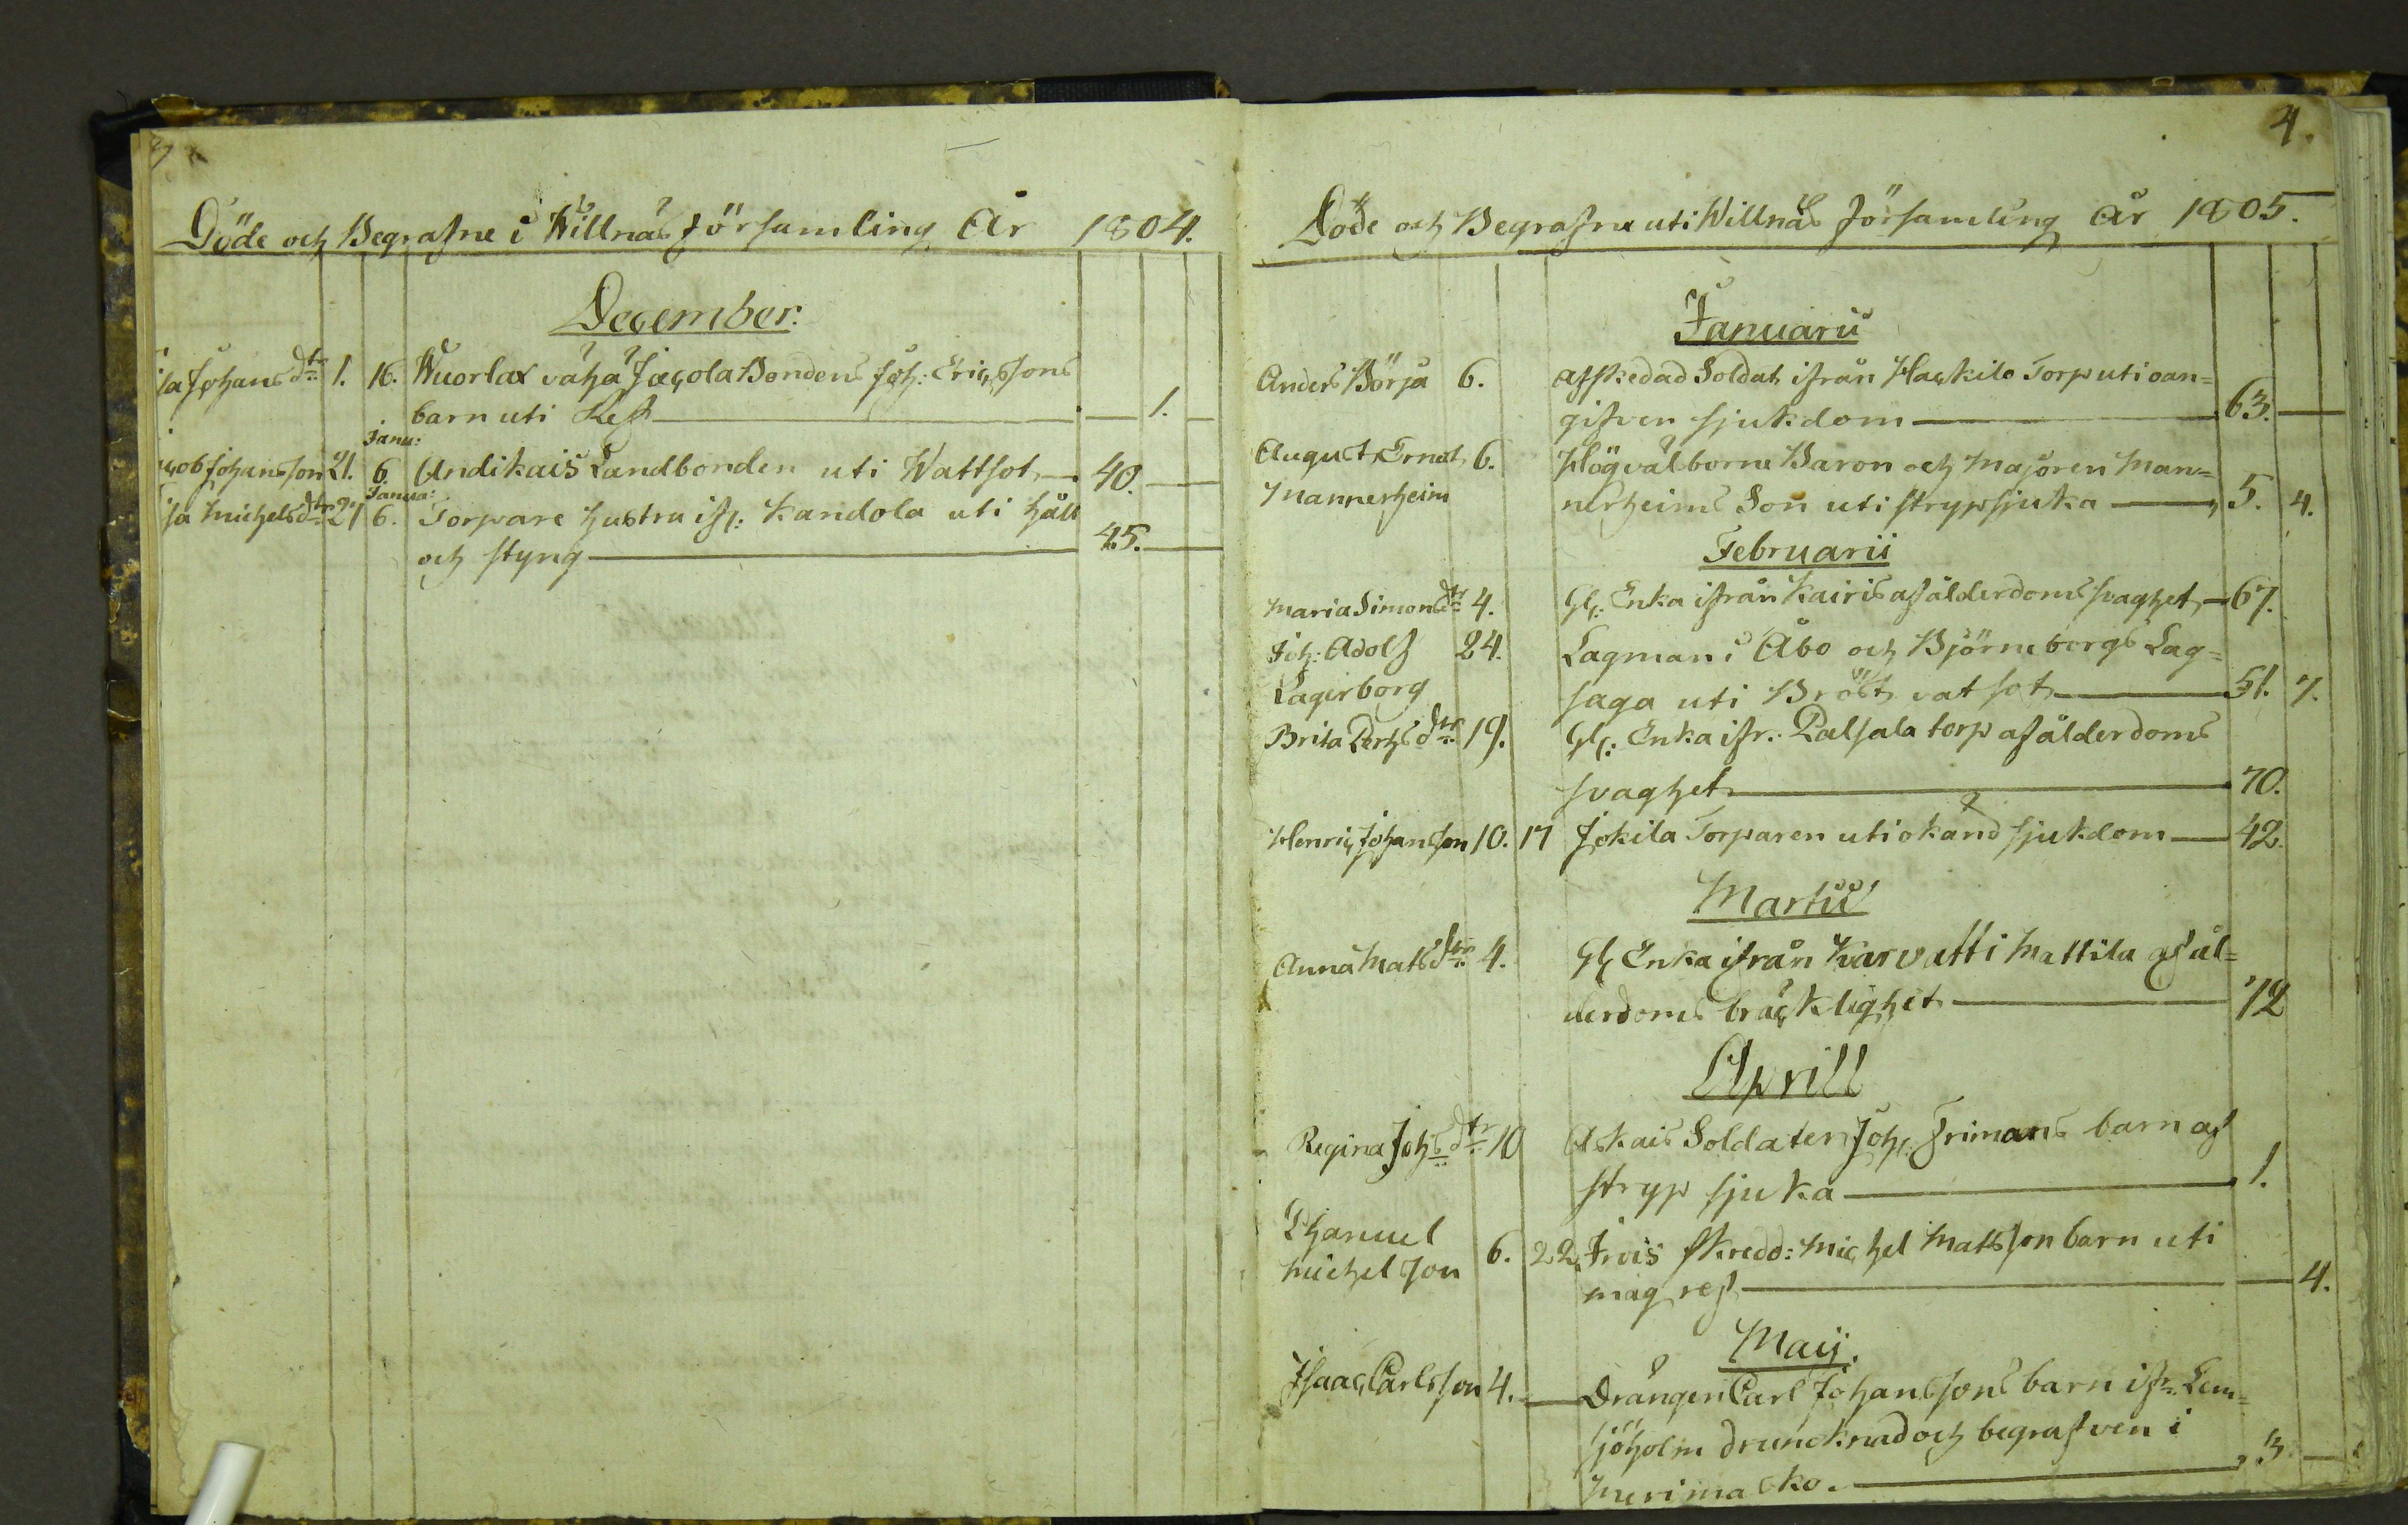 Döde och Begrafne i Willnäs församling År 1804.
December.
sa Johans dtr 1. 16. Wuorlax vähä Jacola Bondens Joh: Ericssons
barn uti Ref 1.
Janu:
acob Johansson 21. 6. Andikais Landbonden uti Wattsot 40.
Janua:
sa Michels dtr 27 6. Torpare hustru ifr: Kandola uti håll
och styng 45.
4.
Döde och Begrafne uti Willnäs församling År 1805.
Januarii
Anders Börja 6. afskedad Soldat ifrån Hackilo Torp uti oan=
gifven sjukdom 63.
August Ernst 6. Högvälborne Baron och Majoren Man=
Mannerheim nerheims Son uti strypsjuka 5. 4.
Februarii
Maria Simons dtr 4. Gl: Enka ifrån Kairis af ålderdoms svaghet 67.
Joh: Adolf 24. Lagman i Åbo och Björneborgs Lag=
Lagerborg saga uti Bröst vatsot 51. 7.
Brita Pertz dtr 19. Gl: Enka ifr: Palsala torp af ålderdoms
svaghet 70.
Henric Johansson 10. 17 Jokila Torparen uti okänd sjukdom 42.
Martii
Anna Mats dtr 4. Gl Enka ifrån Karvatti Mattila af ål=
derdoms bräcklighet 72
Aprill
Regina Johs dtr 10 Askais Soldaten Joh: Frimans barn af
stryp sjuka 1.
Thanuel
Michelson 6. 22. Irois Skredd: Michel Matsson barn uti
mag ref 4.
Maij.
Isaac Carlsson 4. Drängen Carl Johanssons barn ifr: Lem=
sjöholm druncknad och begrafven i
Merimasko. 3.